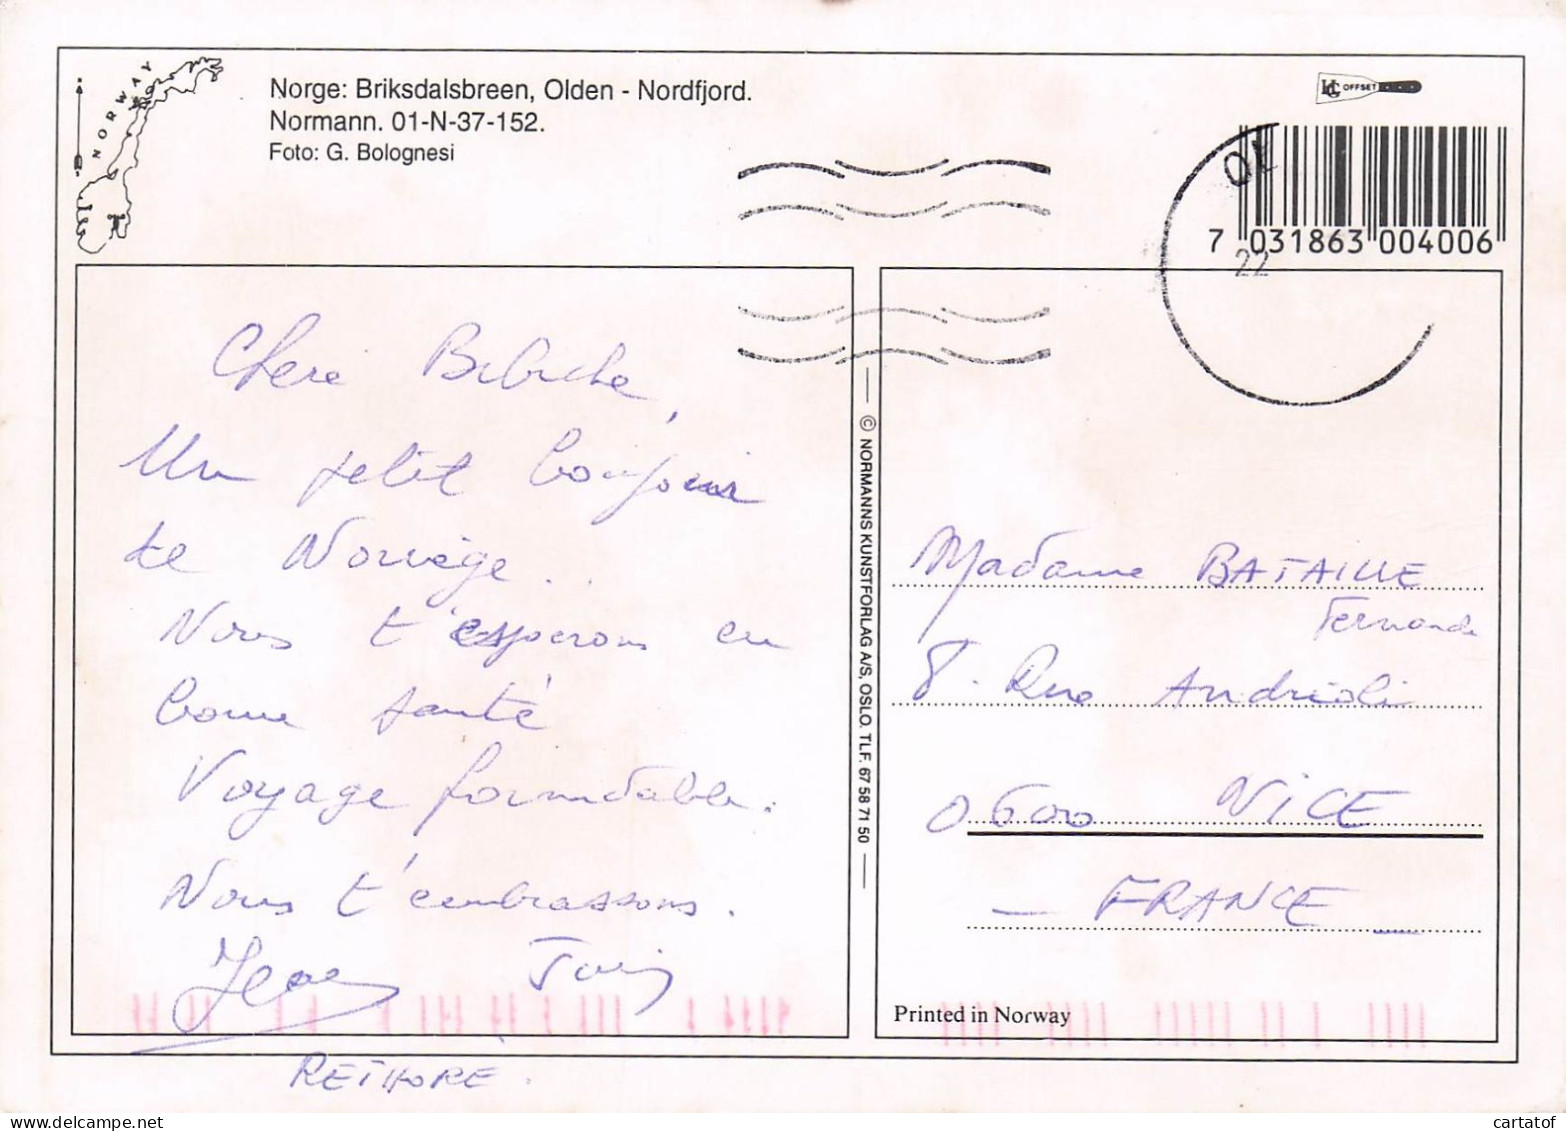 NORWAY
Norge: Briksdalsbreen, Olden - Nordfjord.
Normann. 01-N-37-152.
Foto: G. Bolognesi
OFFSET
OL
22
7 031863 004006
Chère Bibiche,
Un petit bonjour
de Norvège..
Nous t'espérons en
bonne santé
Voyage formidable.
Nous t'embrassons.
Jean
RETHORE.
© NORMANNS KUNSTFORLAG A/S, OSLO. TLF. 67 58 71 50
Madame BATAILLE
Fernande
8. Rue Andrioli
06000 NICE
— FRANCE —
Printed in Norway
cartatof